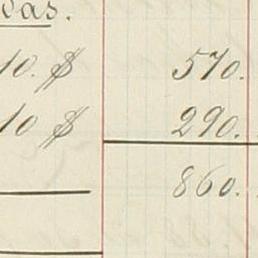 das.
10. $ 570.
10 $ 290.
860.